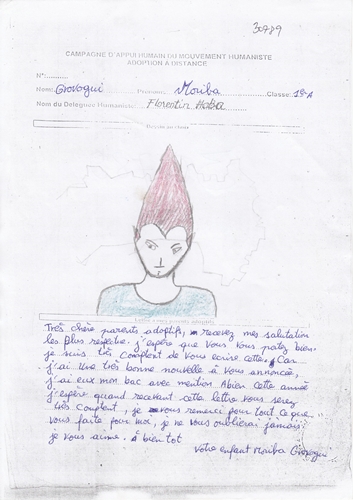 30789
CAMPAGNE D'APPUI HUMAIN DU MOUVEMENT HUMANISTE
ADOPTION A DISTANCE
N°:..........
Nom: Grovogui Prénom: Moriba Classe: 1è A
Nom du Délégué Humaniste: Florentin Haba
Dessin au choix
Lettre à mes parents adoptifs
Très chère parents adoptifs, recevez mes salutation
les plus respetre. j'espère que vous vous portez bien.
je suis très complent de vous ecrire cette. Car
j'ai une très bonne nouvelle à vous annoncée,
j'ai eux mon bac avec mention Abien cette année
j'espère quand recevant cette lettre vous serez
très complent, je vous remerci pour tout ce que
vous faite pour moi, je ne vous oublierai jamais
je vous aime. à bien tot
Votre enfant Moriba Grovogui